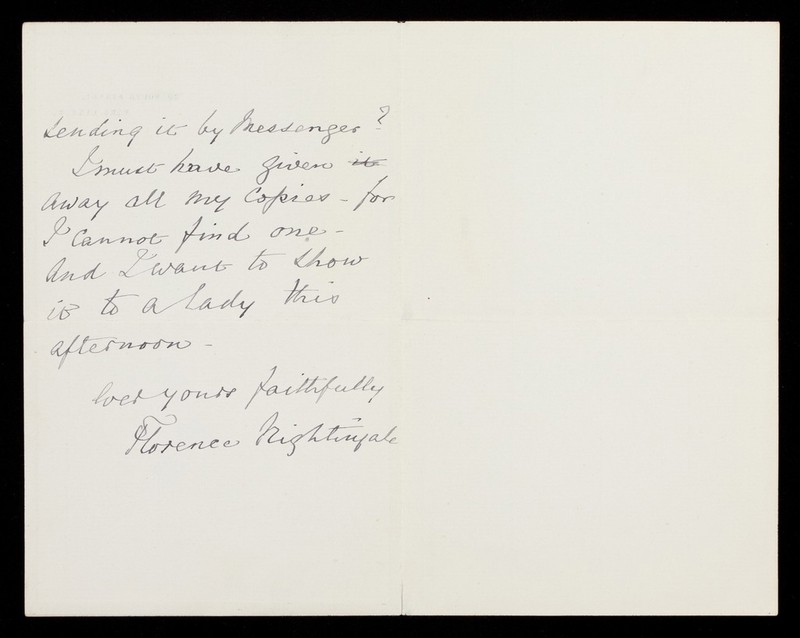 sending it by Messenger?
I must have given it
away all my Copies - for
I cannot find one -
And I want to show
it to a lady this
afternoon -
ever yours faithfully
Florence Nightingale